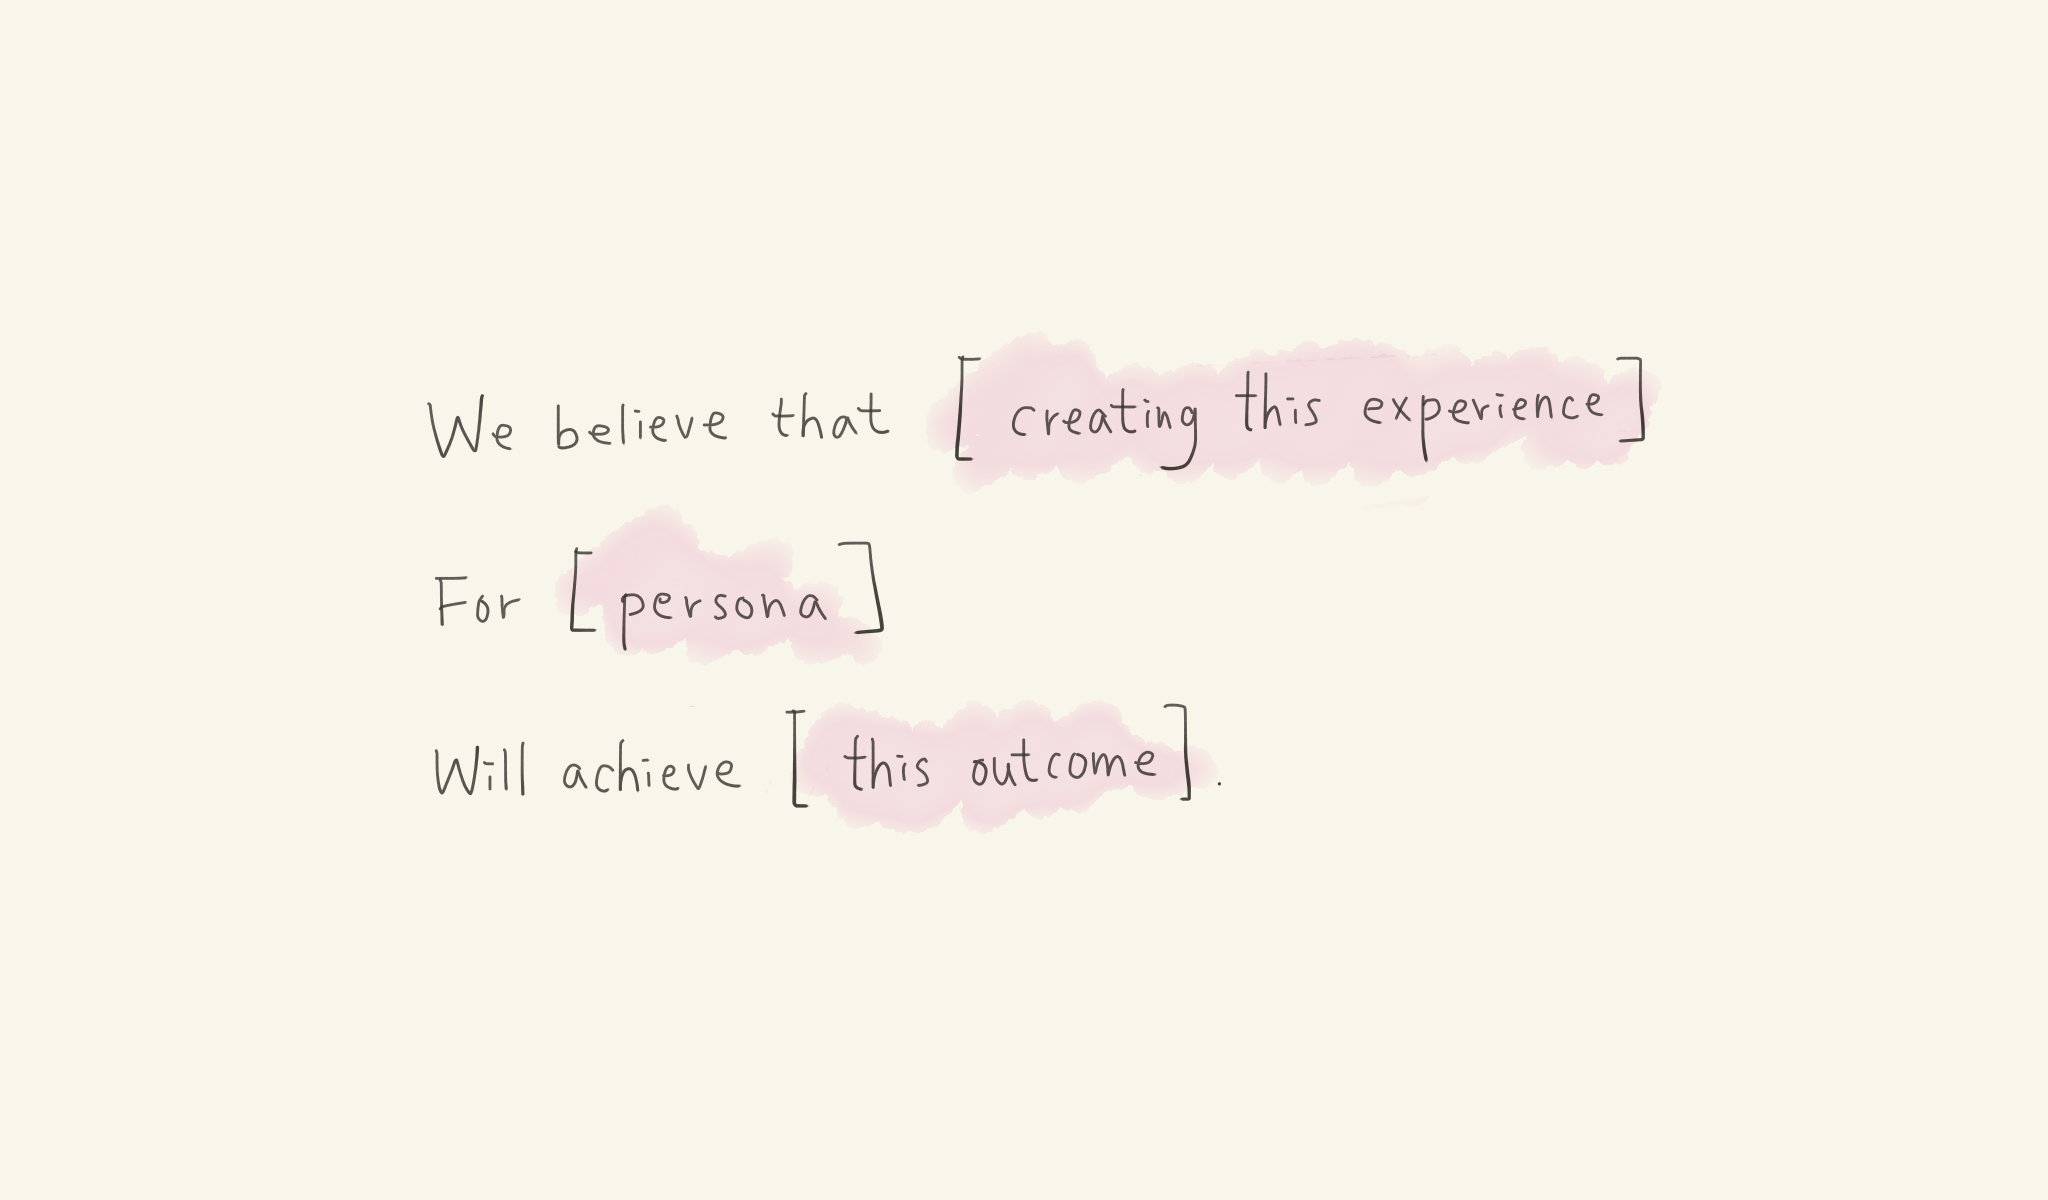 We believe that [creating this experience]
For [persona]
Will achieve [this outcome].